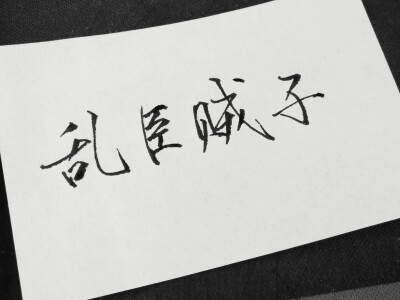 乱臣贼子